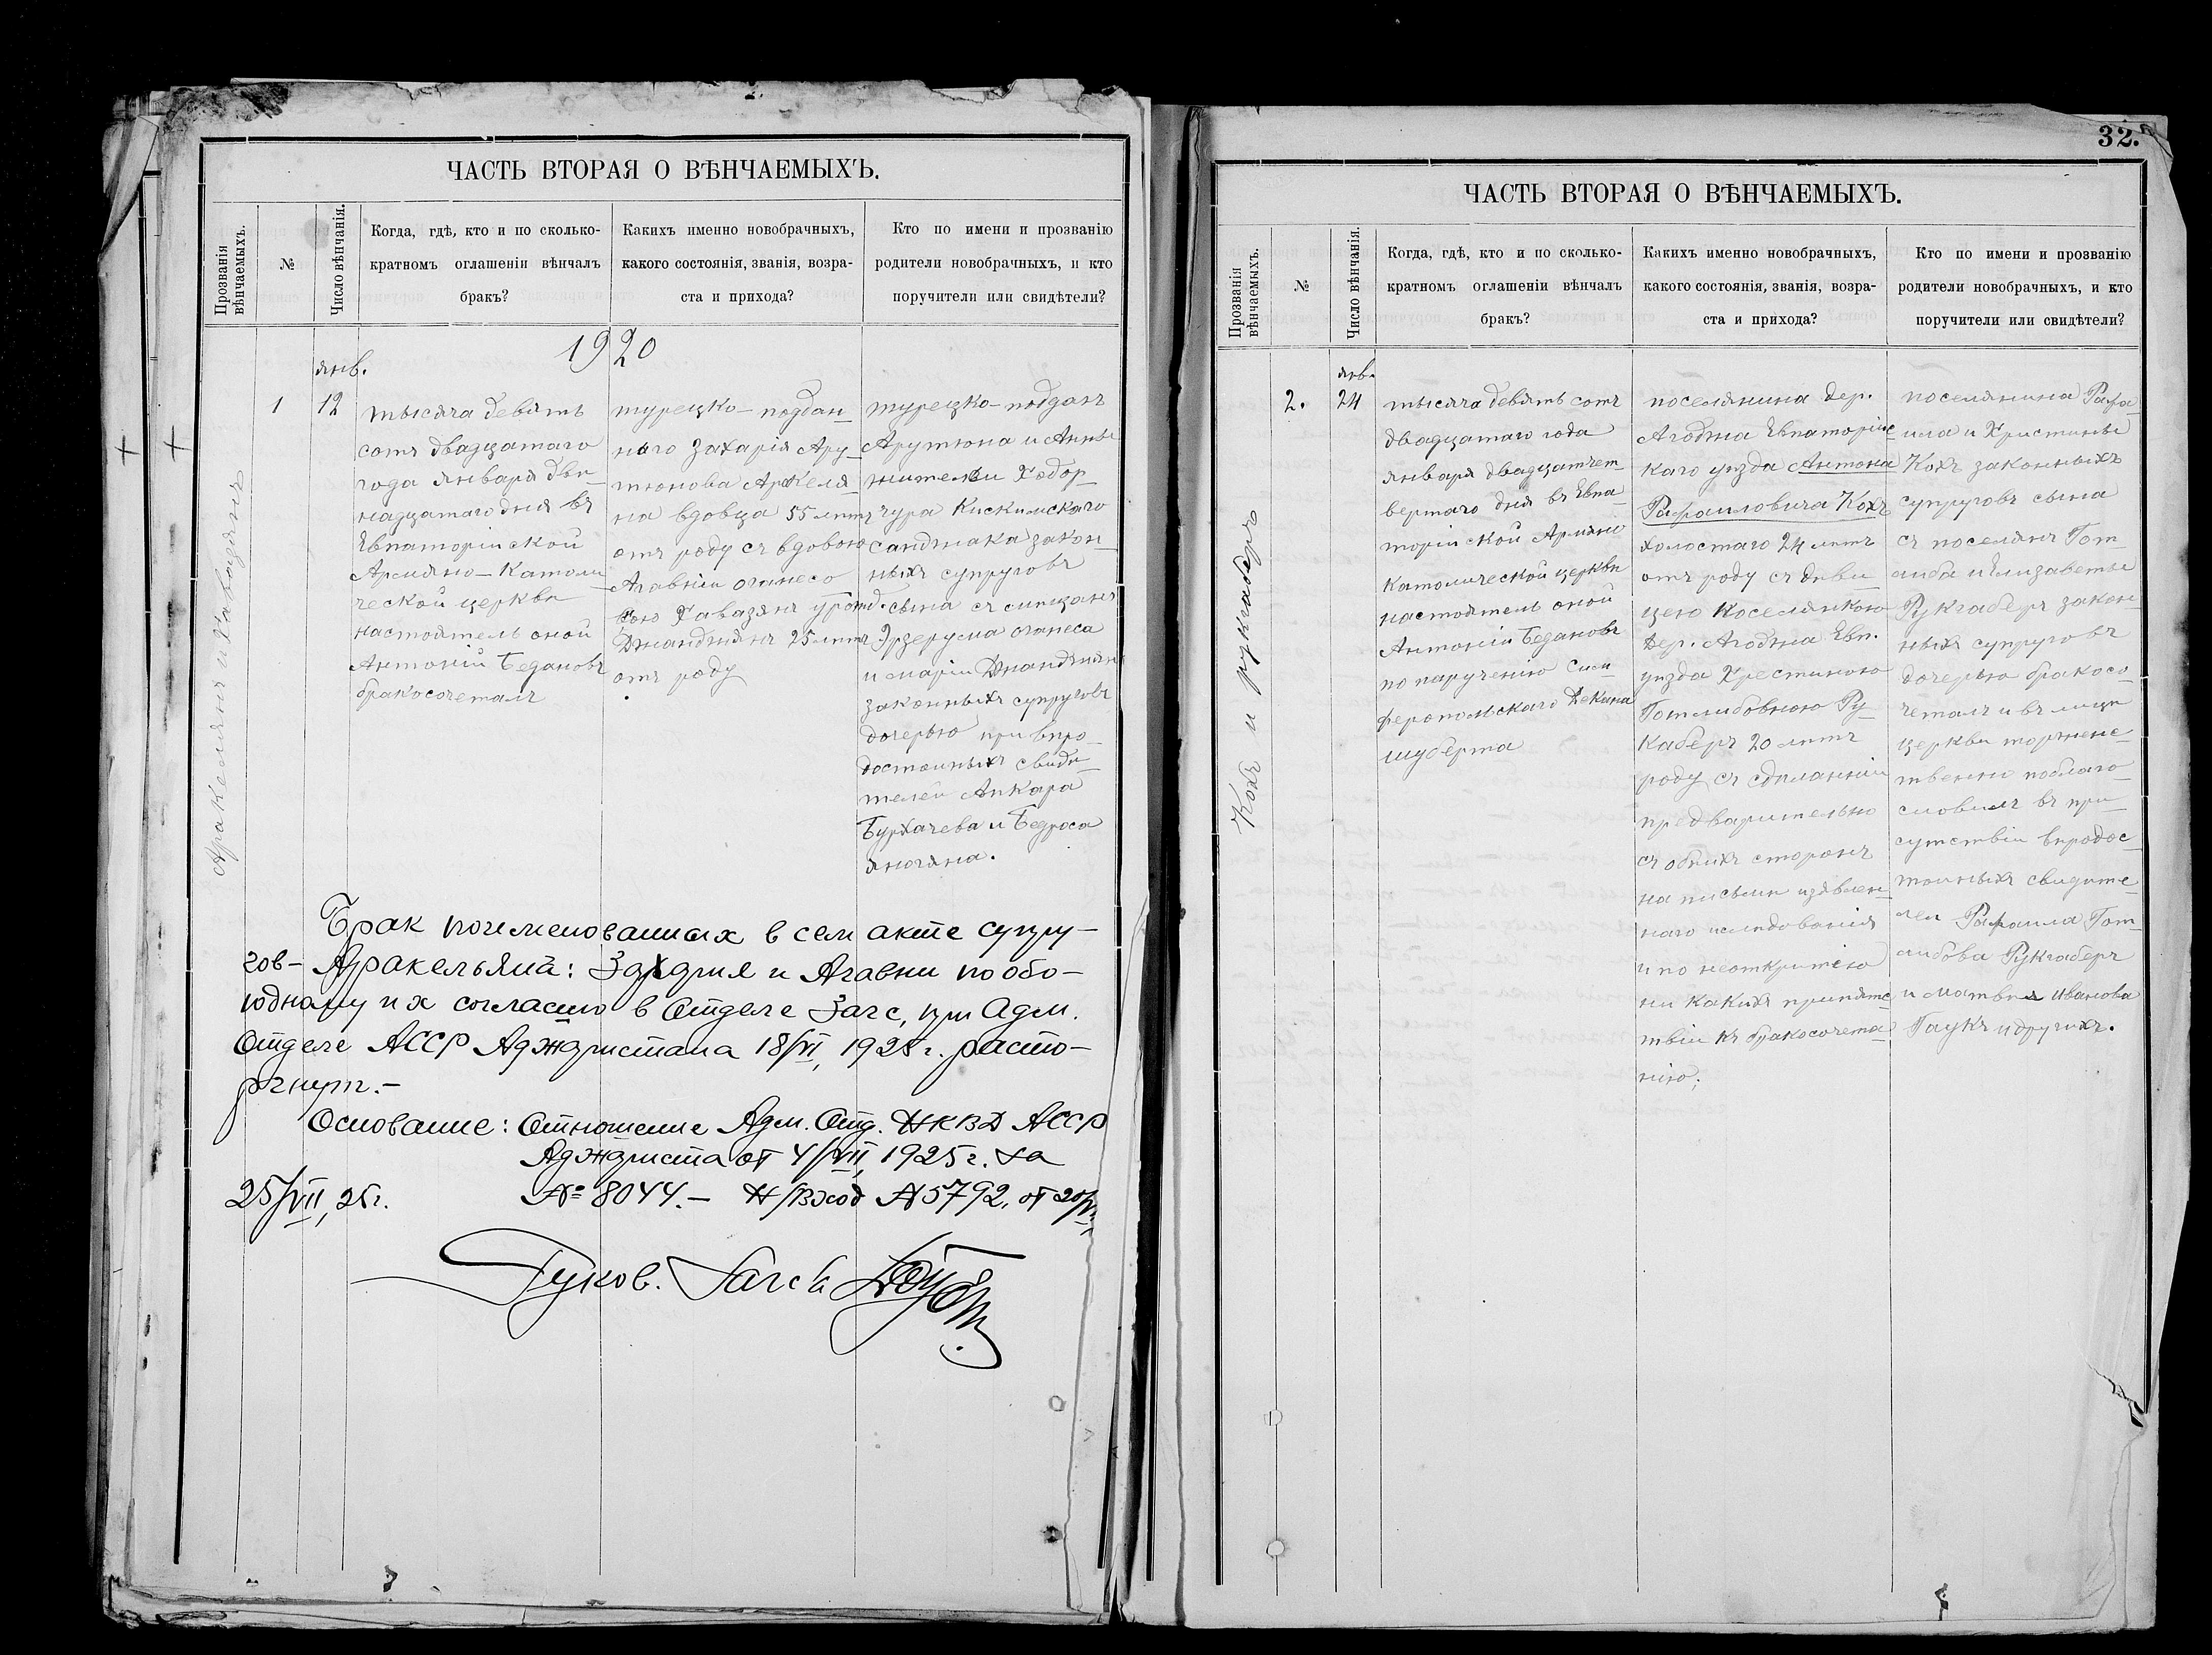 ЧАСТЬ ВТОРАЯ О ВѢНЧАЕМЫХЪ.
Прозванія вѣнчаемыхъ.
№
Число вѣнчанія.
Когда, гдѣ, кто и по сколько-
кратномъ оглашеніи вѣнчалъ
бракъ?
Какихъ именно новобрачныхъ,
какого состоянія, званія, возра-
ста и прихода?
Кто по имени и прозванію
родители новобрачныхъ, и кто
поручители или свидѣтели?
1920
янв.
1
12
тысяча девять
сотъ двадцатаго
года января два-
надцатаго дня въ
Евпаторійской
Армяно-Католи
ческой церкви
настоятель оной
Антоній Бедановъ
бракосочеталъ
турецко-поддан-
наго Захарія Ару-
тюнова Аракеля-
на вдовца 55 лѣтъ
отъ роду съ вдовою
Агавніи Оганесо
вою Хавазянъ урожд.
Джанджянъ 25 лѣтъ
отъ роду
турецко-поддан
Арутюна и Анны
жители Ходор-
чура Кискимскаго
санджака закон-
ныхъ супруговъ
сына съ
Эрзерума Оганеса
и Маріи Джанджян
законныхъ супруговъ
дочерью при впро-
достойныхъ свидѣ-
телей Апкара
Бурхачева и Бедроса
Яногяна.
Брак поименованных в сем акте супру-
гов- Аракельяна: Захария и Агавни по обо-
юдному их согласию в Отделе Загс, при Адм.
Отделе АССР Аджаристана 18/VI, 1925 г. расто-
ргнут.-
Основание: Отношение Адм. Отд. НКВД АССР
Аджариста от 4/VII, 1925 г. за
25/VII, 25 г.
№ 8044.- Н/вход № 5792. от 20/VII
Руков. Загса
32.
ЧАСТЬ ВТОРАЯ О ВѢНЧАЕМЫХЪ.
Прозванія вѣнчаемыхъ.
№
Число вѣнчанія.
Когда, гдѣ, кто и по сколько-
кратномъ оглашеніи вѣнчалъ
бракъ?
Какихъ именно новобрачныхъ,
какого состоянія, званія, возра-
ста и прихода?
Кто по имени и прозванію
родители новобрачныхъ, и кто
поручители или свидѣтели?
Кохъ и рукгаберъ
янв.
2.
24
тысяча девять сотъ
двадцатаго года
января двадцатчет
вертаго дня въ Евпа-
торійской Армяно
католической церкви
настоятель оной
Антоній Бедановъ
по порученію Сим
феропольскаго Декана
шуберта
поселянина дер.
Агоджа Евпаторійс
каго уѣзда Антона
Рафаиловича Кохъ
холостаго 24 лѣтъ
отъ роду съ дѣви
цею поселянкою
дер. Агоджа Евп.
уѣзда Хрестиною
Готлибовною Ру-
кгаберъ 20 лѣтъ
роду съ сдѣланнiи
предварительно
съ обѣихъ сторонъ
на письмѣ изявлен-
наго изслѣдованія
и по неоткритію
ни какихъ припятс
твіи къ бракосочета
нію;
поселянина Рафа-
ила и Христины
Кохъ законныхъ
супруговъ сына
съ поселянъ Гот-
либа и Елизаветы
Рукгаберъ закон-
ныхъ супруговъ
дочерью бракосо
четалъ и въ лицѣ
церкви торжене-
твенно поблаго-
словилъ въ при
сутствіи впродос-
тойныхъ свидите-
леи Рафаила Гот-
либова Рукгаберъ
и Матвія Иванова
Гаукъ и другихъ.